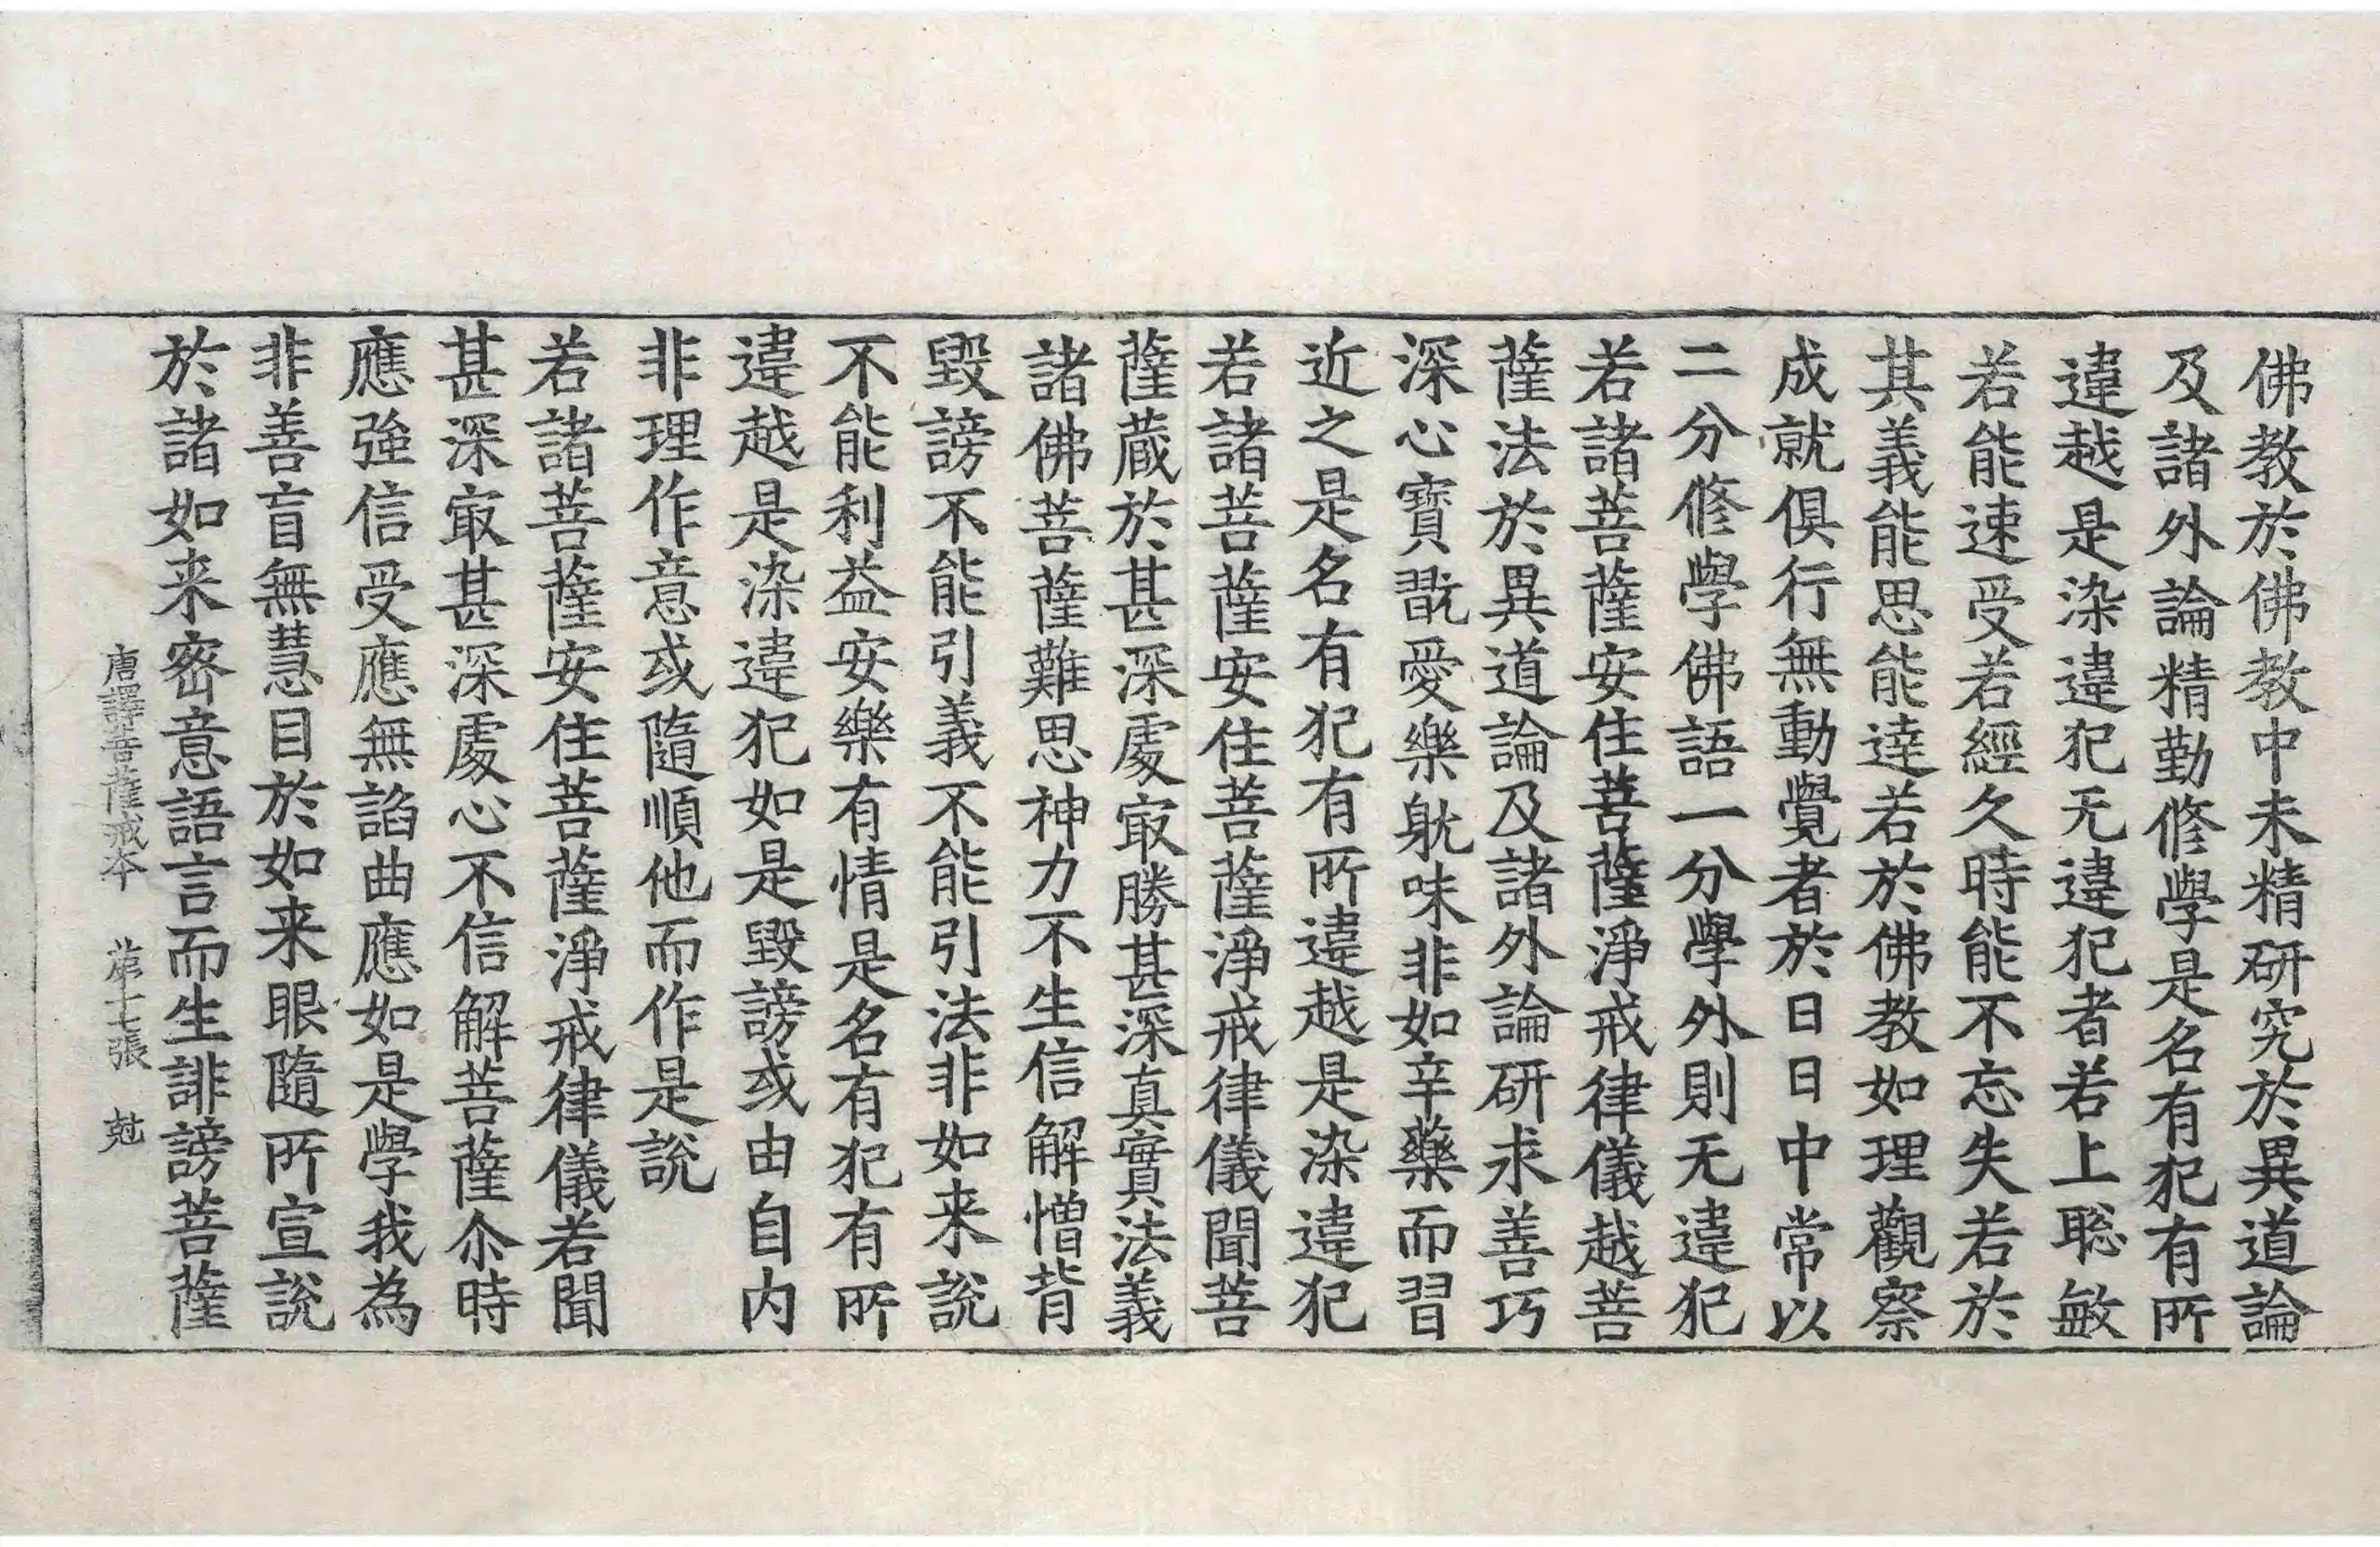 佛教於佛教中未精研究於異道論
及諸外論精勤修學是名有犯有所
違越是染違犯无違犯者若上聡敏
若能速受若經久時能不忘失若於
其義能思能達若於佛教如理觀察
成就俱行無動覺者於日日中常以
二分修學佛語一分學外則无違犯
若諸菩薩安住菩薩淨戒律儀越菩
薩法於異道論及諸外論研求善巧
深心寶翫愛樂躭味非如辛藥而習
近之是名有犯有所違越是染違犯
若諸菩薩安住菩薩淨戒律儀聞菩
薩蔵於甚深處㝡勝甚深真實法義
諸佛菩薩難思神力不生信解憎背
毀謗不能引義不能引法非如来說
不能利益安樂有情是名有犯有所
違越是染違犯如是毀謗或由自内
非理作意或隨順他而作是說
若諸菩薩安住菩薩淨戒律儀若聞
甚深㝡甚深處心不信解菩薩尒時
應強信受應無諂曲應如是學我為
非善盲無慧目於如来眼隨所宣說
於諸如来密意語言而生誹謗菩薩
唐譯菩薩戒本 第十張 尅